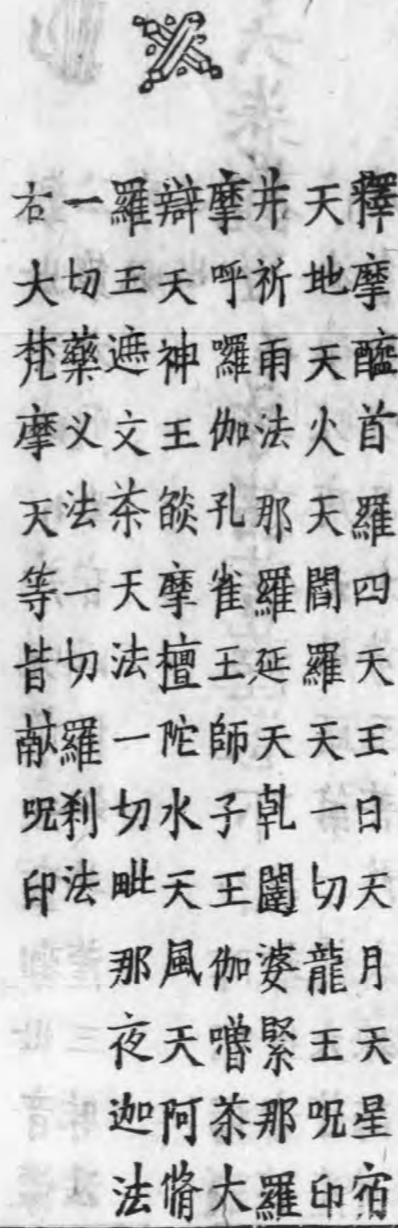 釋摩醯首羅四天王日天月天星宿
天地天火天閻羅天一切龍王呪印
并祈雨法那羅延天乾闥婆緊那羅
摩呼囉伽孔雀王師子王伽嚕茶大
辯天神王燄摩檀陀水天風天阿脩
羅王遮文茶天法一切毗那夜迦法
一切藥叉法一切羅刹法
右大梵摩天等皆献呪印